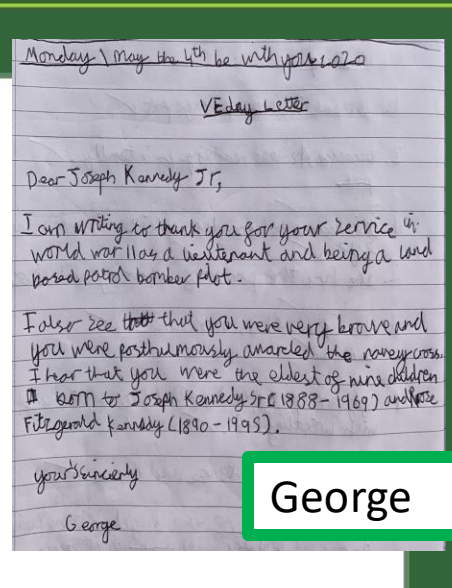 Monday \ may the 4th be with you 2020
VEday Letter
Dear Joseph Kennedy Jr,
I am writing to thank you for your service in
world war II as a lieutenant and being a land
based patrol bomber pilot.
I also see that that you were very brave and
you were posthumously awarded the navey cross.
I hear that you were the eldest of nine children
born to Joseph Kennedy Sr (1888-1969) and Rose
Fitzgerald Kennedy (1890-1995).
your sincierly
George
George